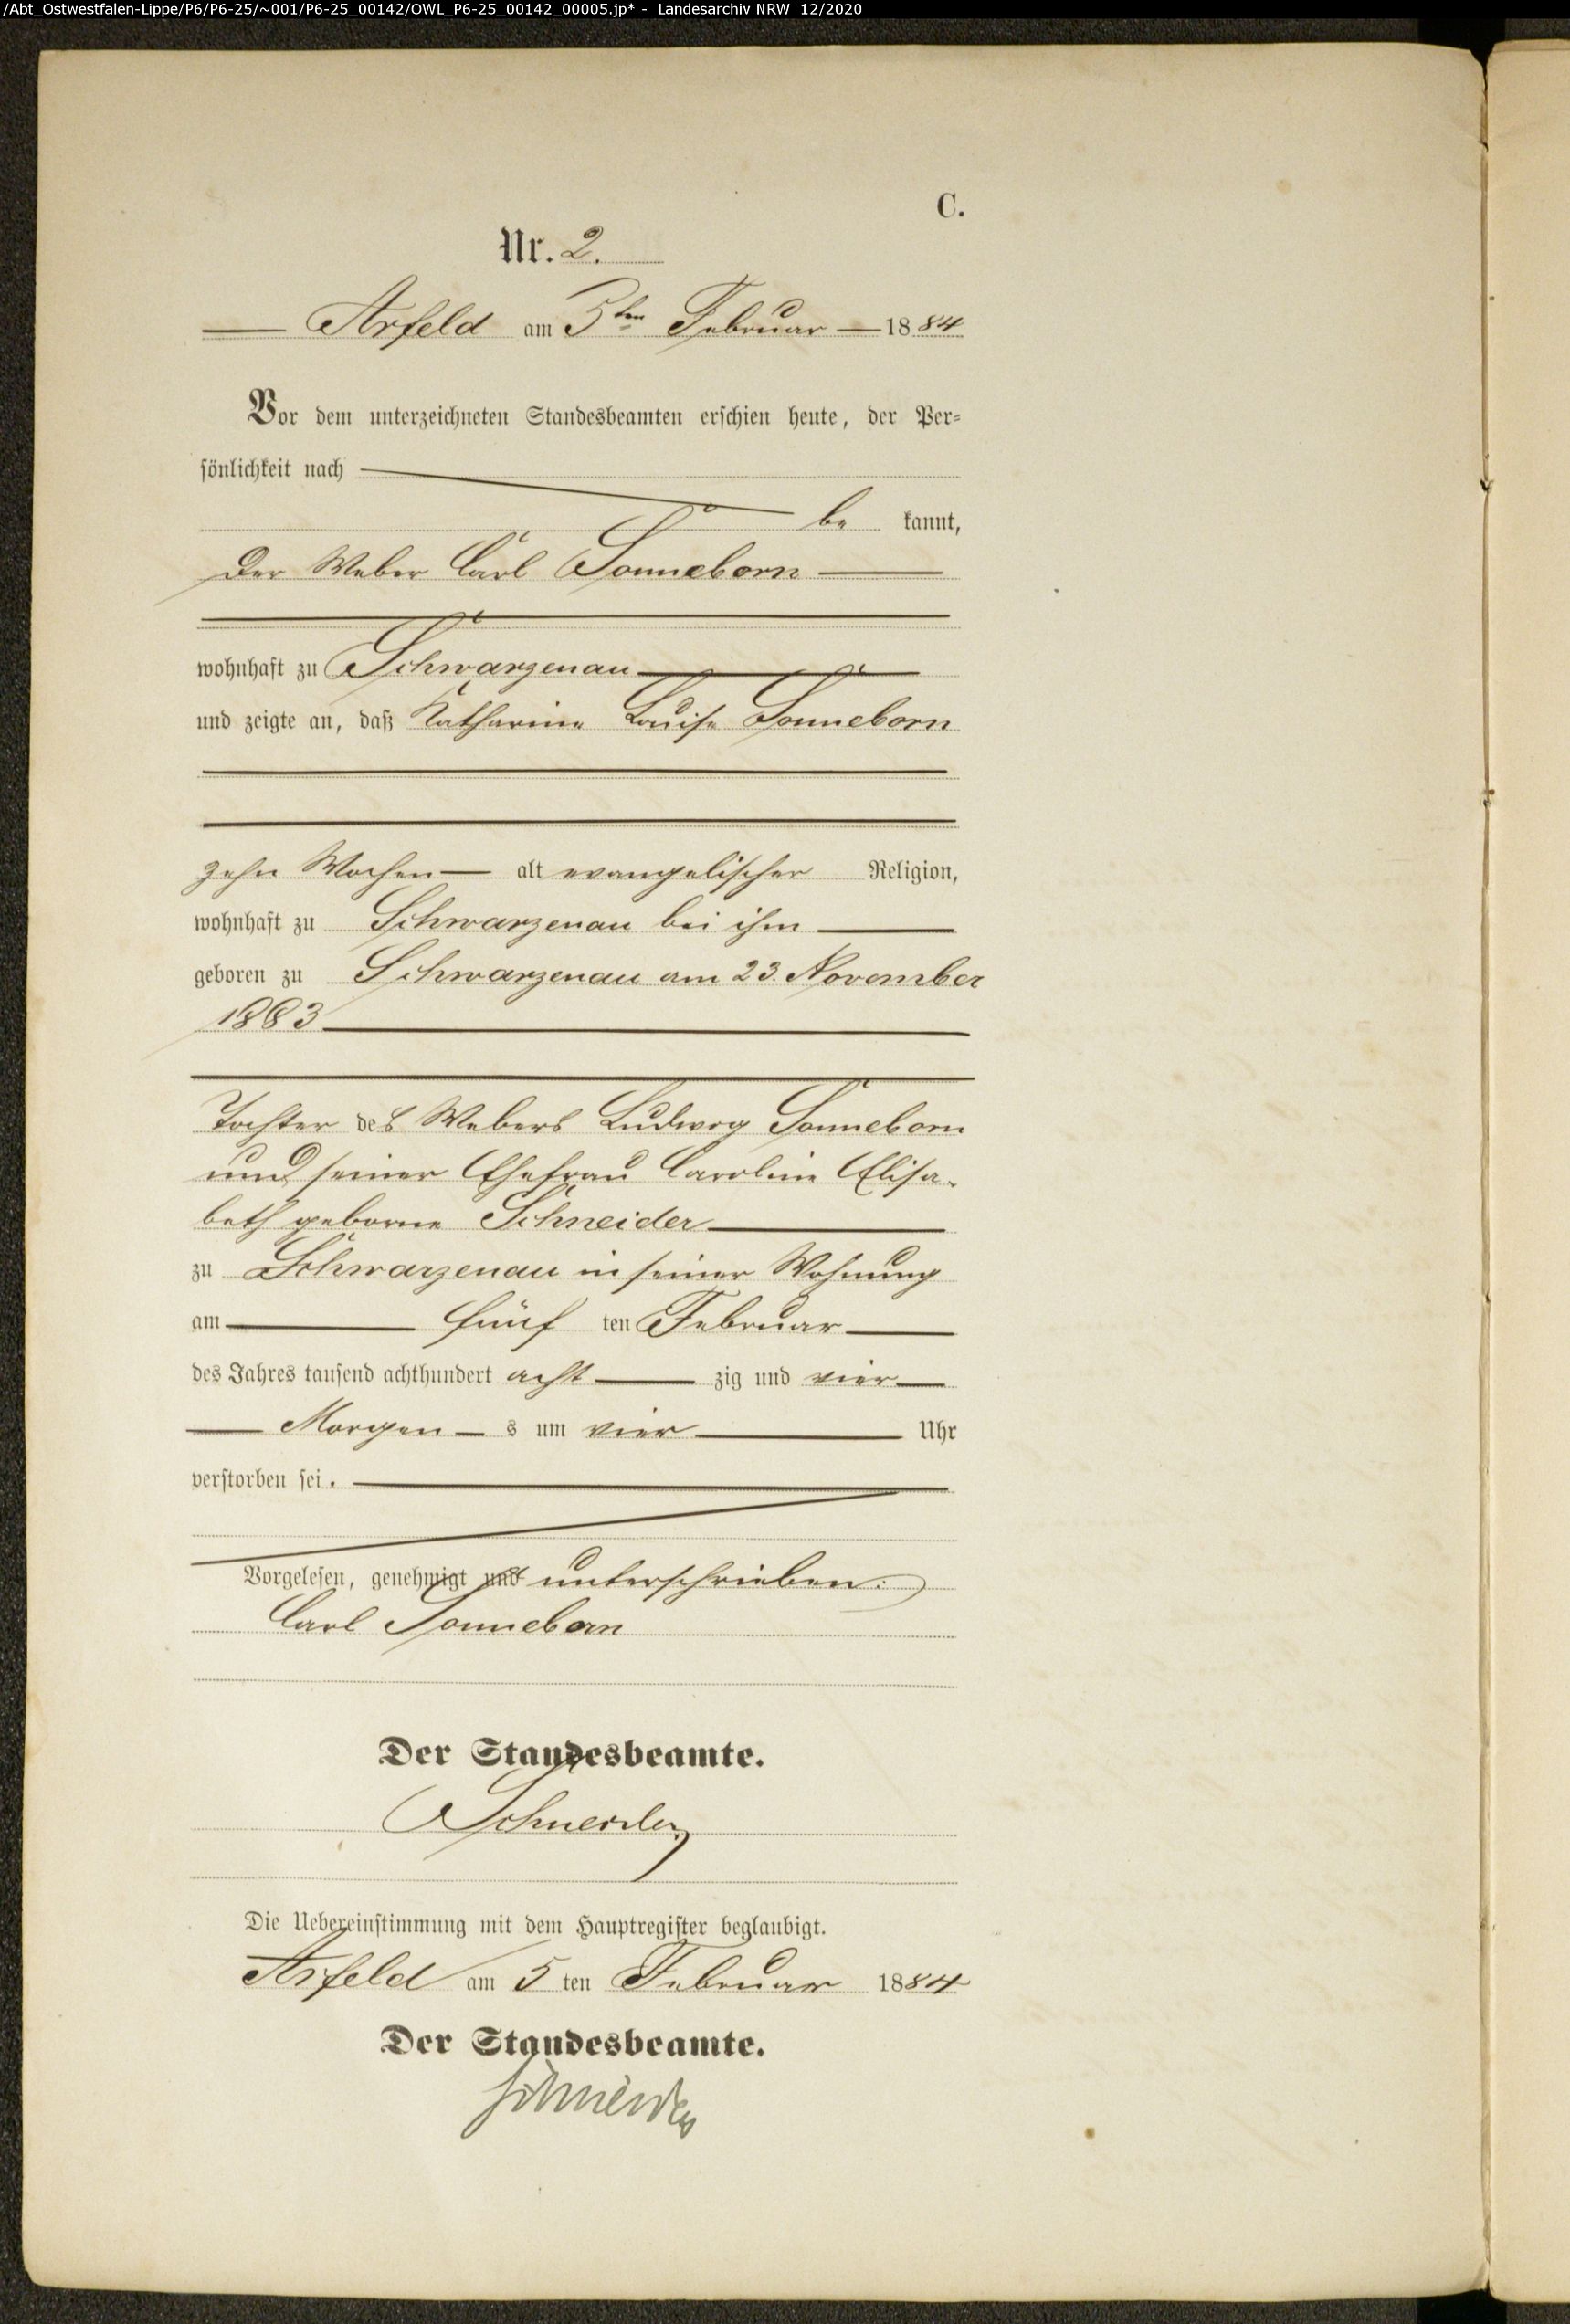 /Abt_Ostwestfalen-Lippe/P6/P6-25/~001/P6-25_00142/OWL_P6-25_00142_00005.jp* - Landesarchiv NRW 12/2020
C.
Nr. 2.
Arfeld am 5ten Februar 1884
Vor dem unterzeichneten Standesbeamten erschien heute, der Per-
sönlichkeit nach
be kannt,
Der Weber Carl Sonneborn
wohnhaft zu Schwarzenau
und zeigte an, daß Katharine Louise Sonneborn
zehn Wochen alt evangelischer Religion,
wohnhaft zu Schwarzenau bei ihm
geboren zu Schwarzenau am 23. November
1883
Tochter des Webers Ludwig Sonneborn
und seiner Ehefrau Caroline Elisa-
beth geborne Schneider
zu Schwarzenau in seiner Wohnung
am fünf ten Februar
des Jahres tausend achthundert acht zig und vier
Morgen s um vier Uhr
verstorben sei.
Vorgelesen, genehmigt und unterschrieben:
Carl Sonneborn
Der Standesbeamte.
Schneider
Die Uebereinstimmung mit dem Hauptregister beglaubigt.
Arfeld am 5 ten Februar 1884
Der Standesbeamte.
Schneider